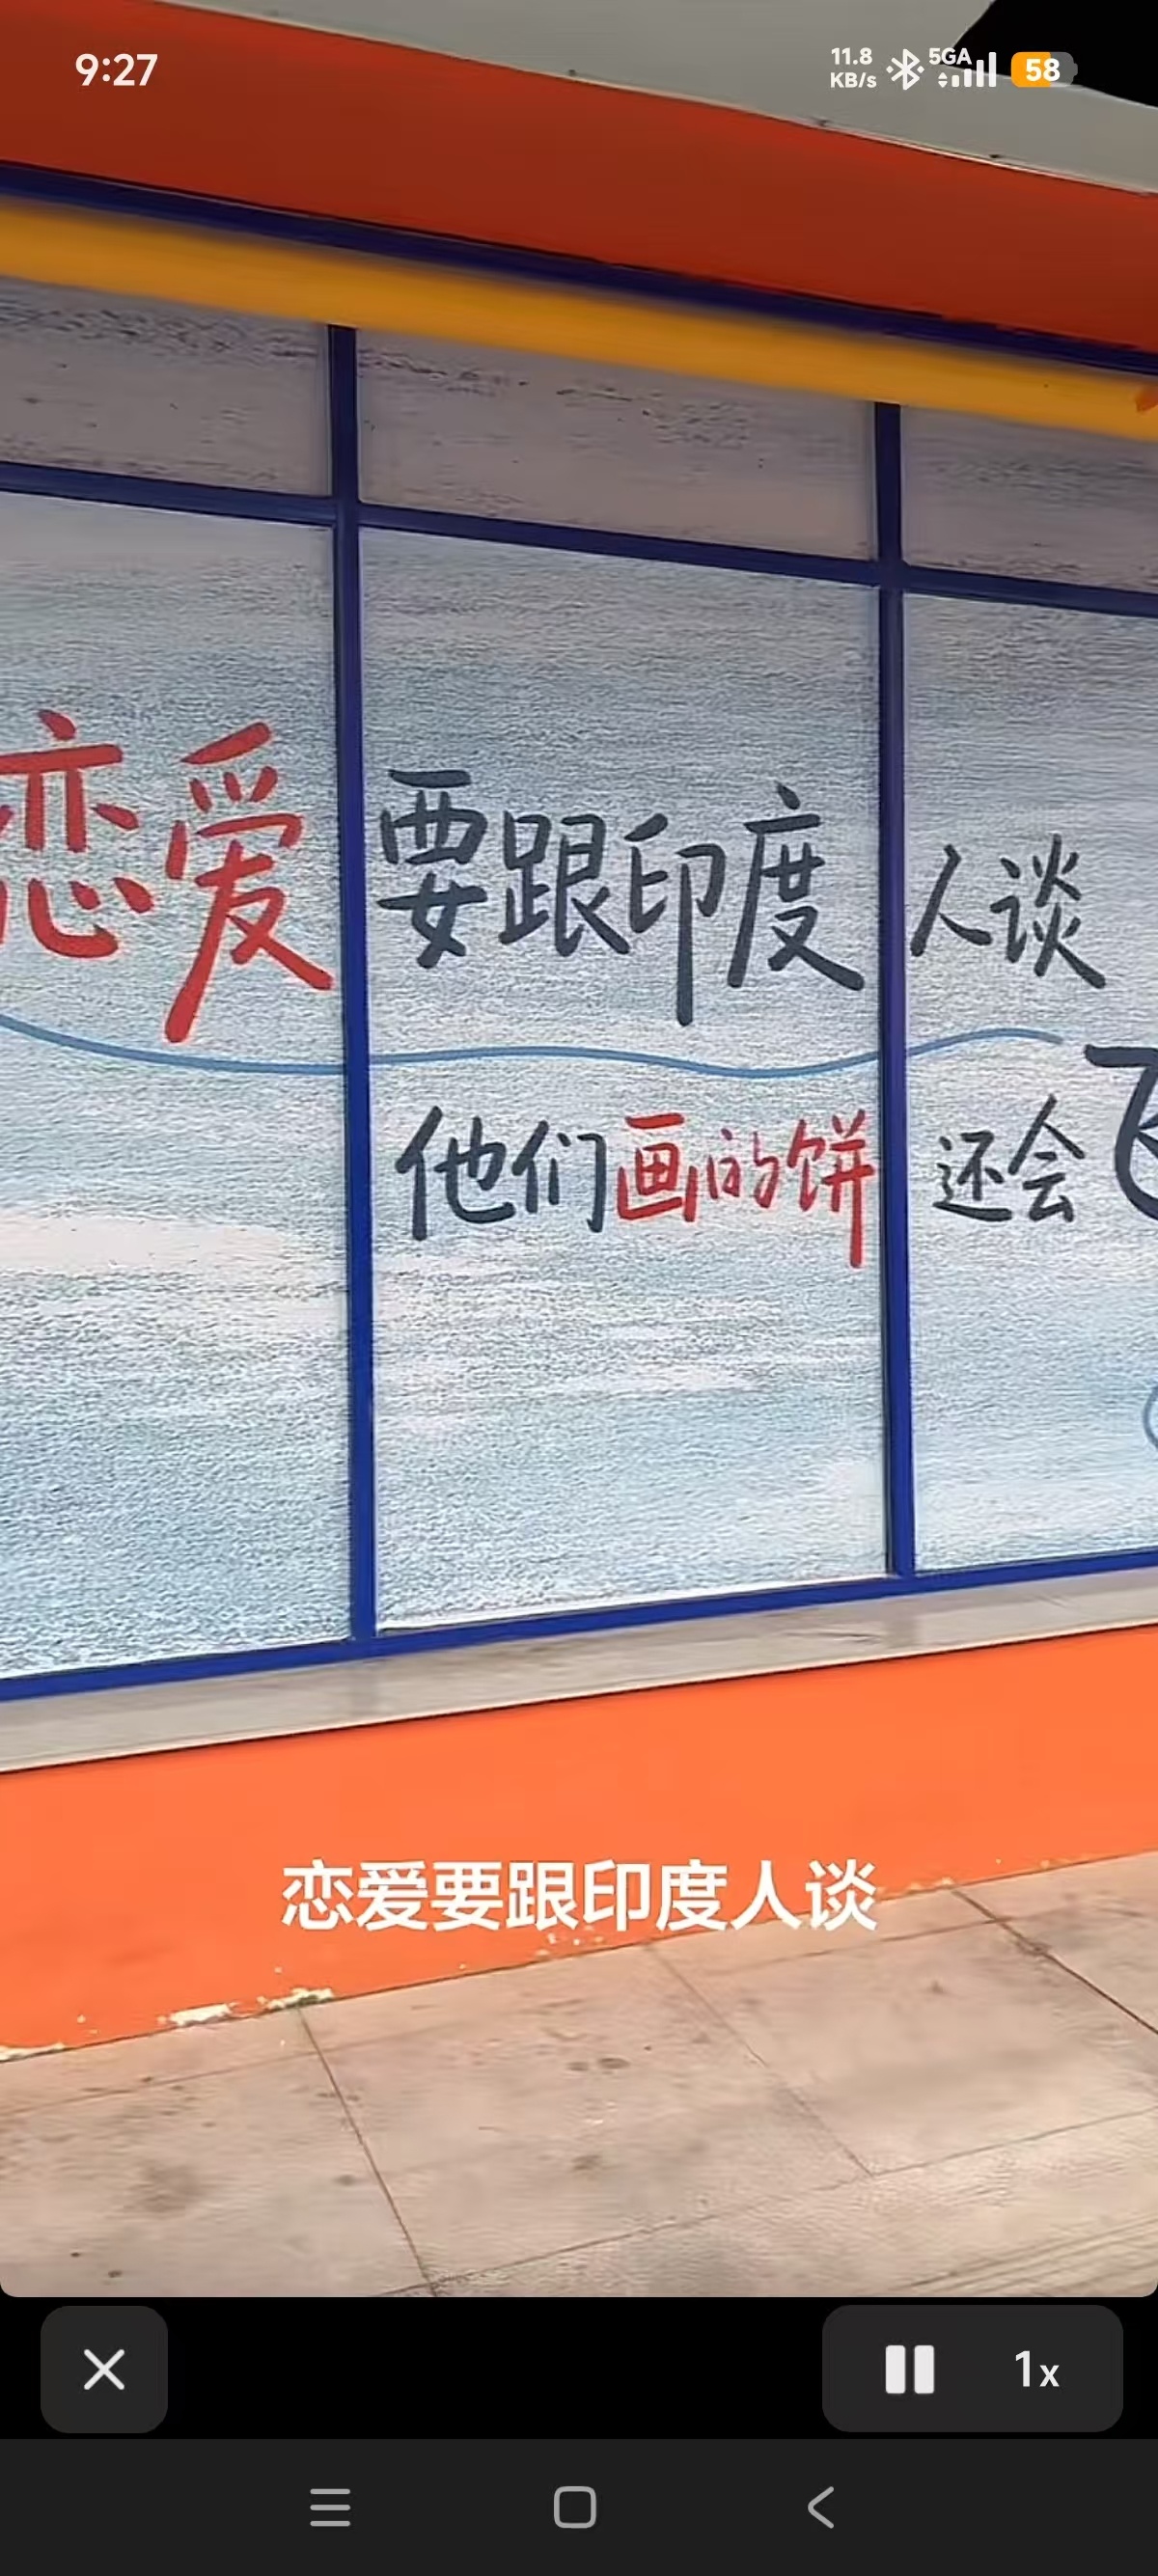 9:27
11.8 KB/s 5GA 58
恋爱要跟印度人谈
他们画的饼还会飞
恋爱要跟印度人谈
1x